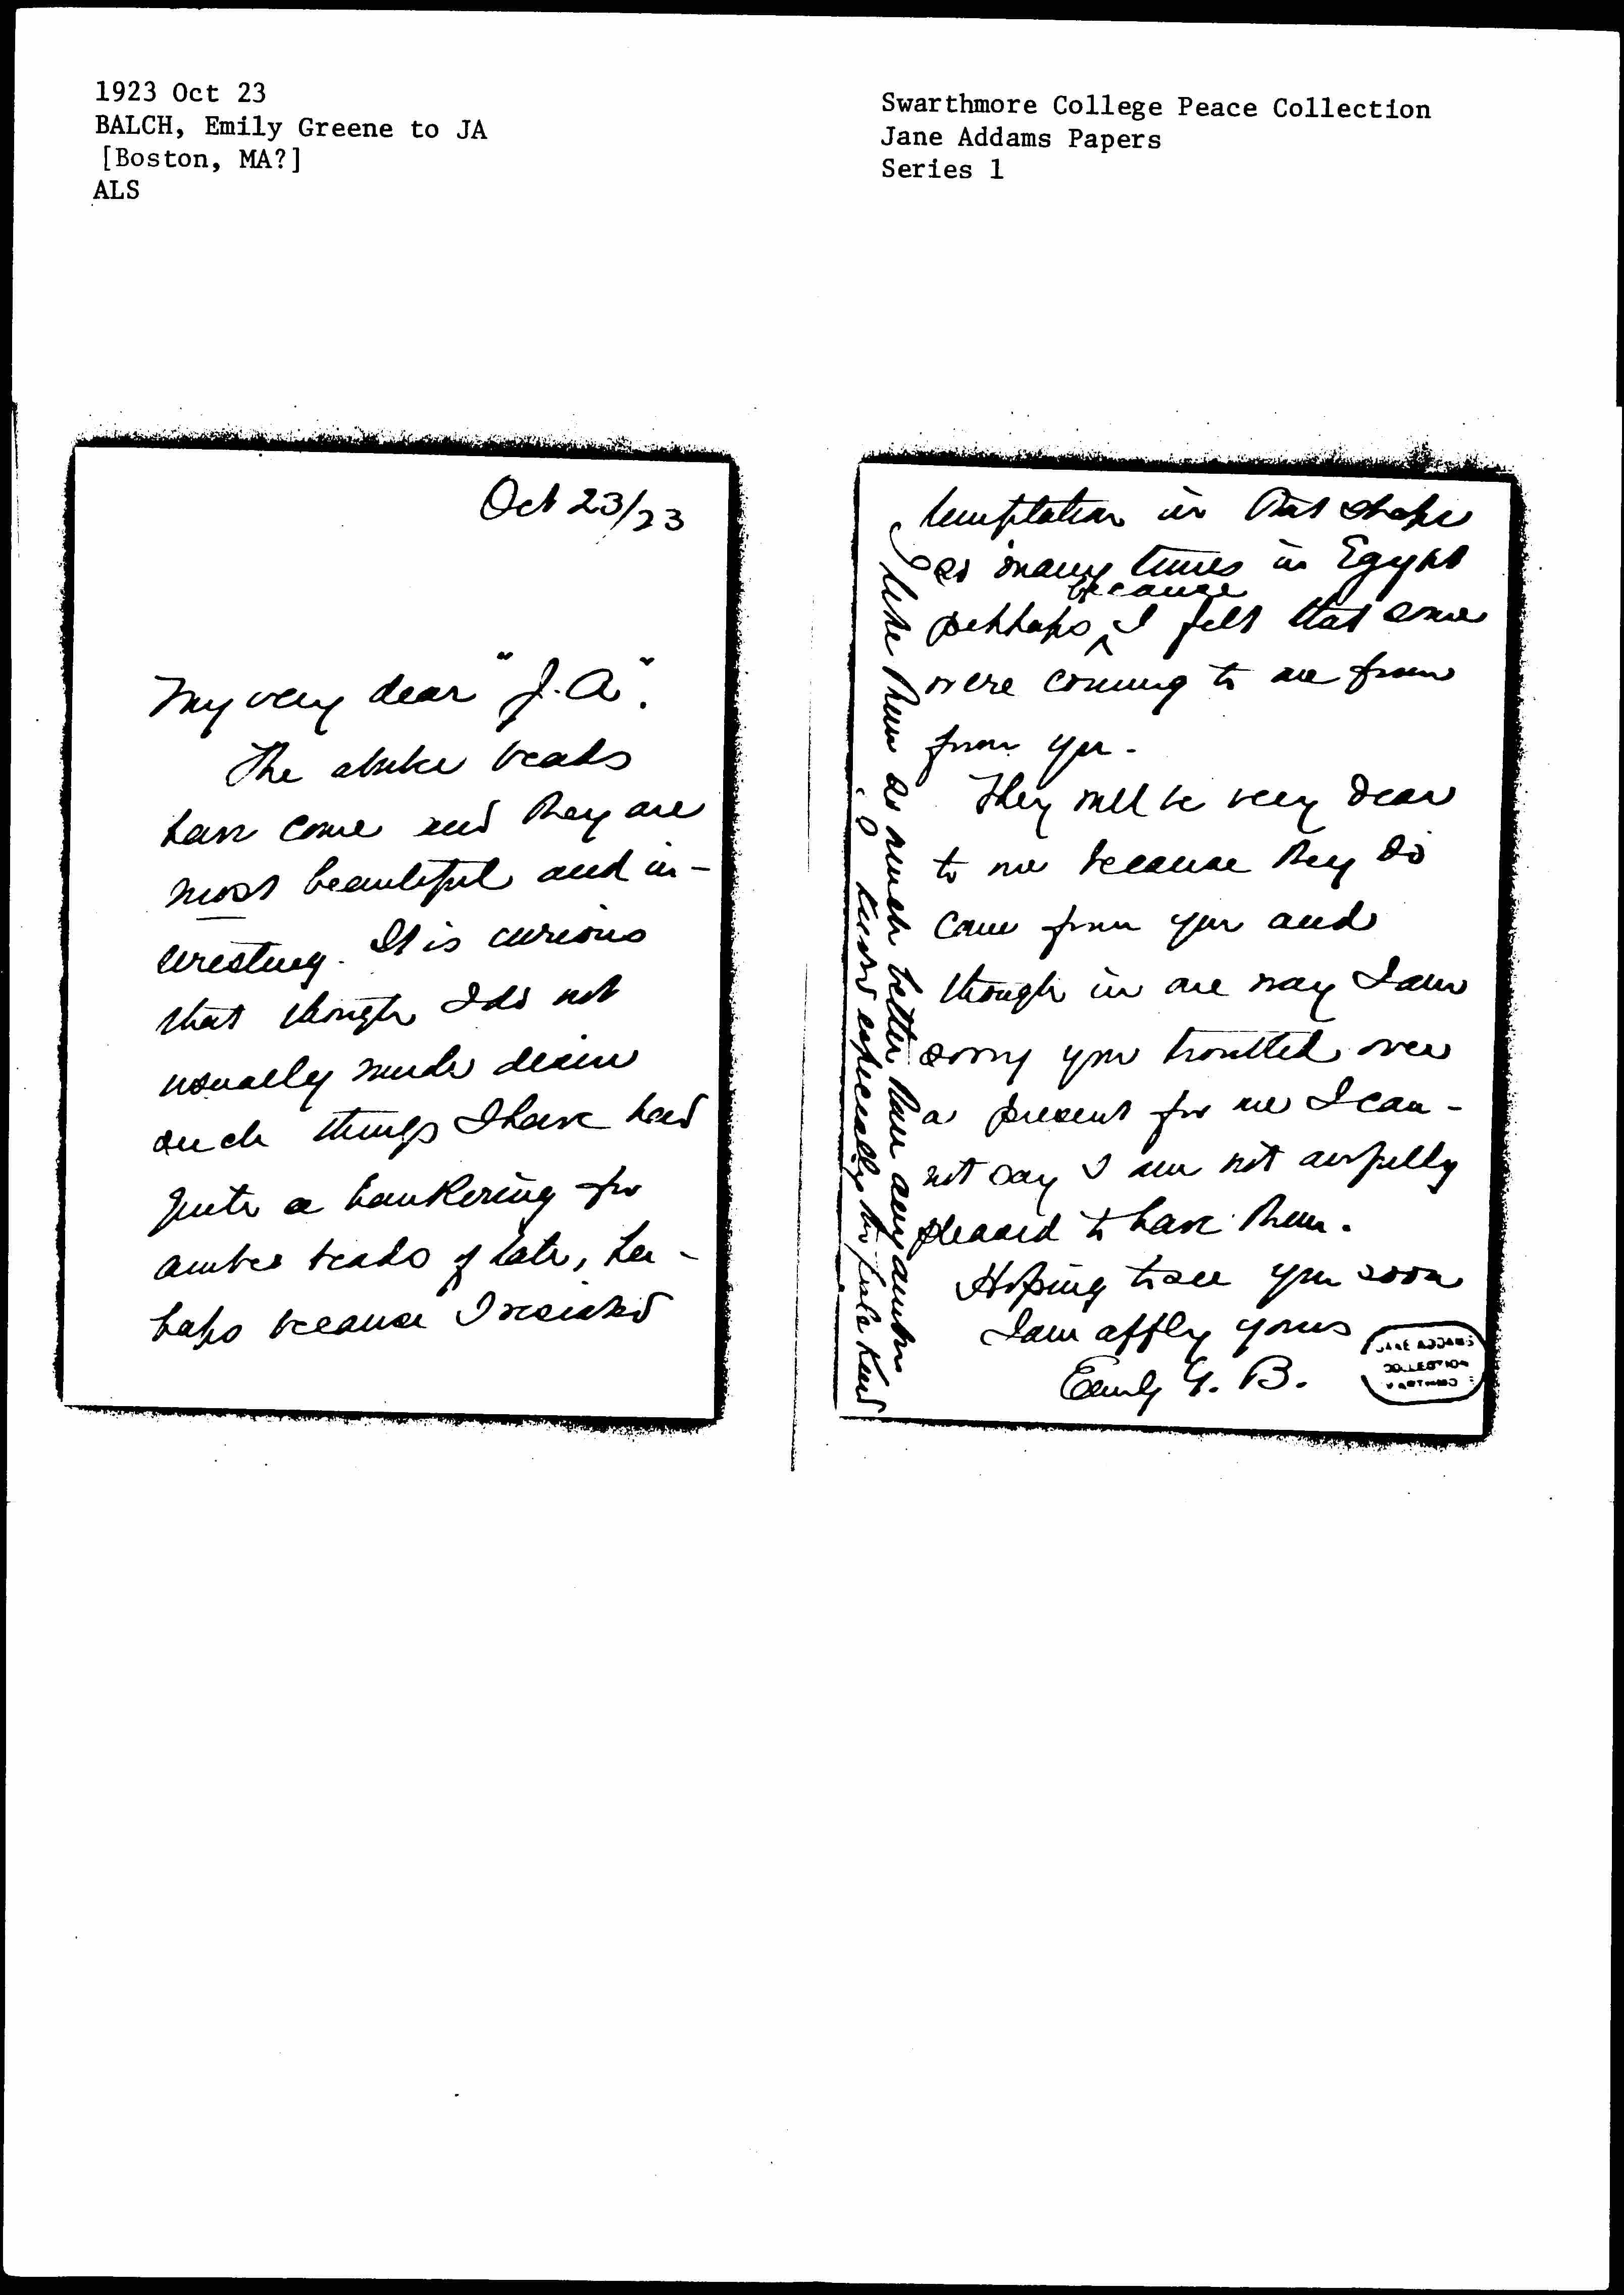 1923 Oct 23
BALCH, Emily Greene to JA
[Boston, MA?]
ALS
Swarthmore College Peace Collection
Jane Addams Papers
Series 1
Oct 23/23
My very dear "J.A".
The beads
have come and they are
most beautiful and in-
teresting. It is curious
that though I do not
usually much desire
such things I have had
quite a hankering for
amber beads of late, per-
haps because I resisted
temptation in that shape
so many times in Egypt
because
perhaps ^ I felt that some
were coming to me from
from you.
They will be very dear
to me because they do
come from you and
though in one way I am
sorry you troubled over
a present for me I can-
not say I am not awfully
pleased to have them.
Hoping to see you soon
I am affly yours
Emily G. B.
I like them so much better than any amber
I know especially the pale kind
JANE ADDAMS
COLLECTION